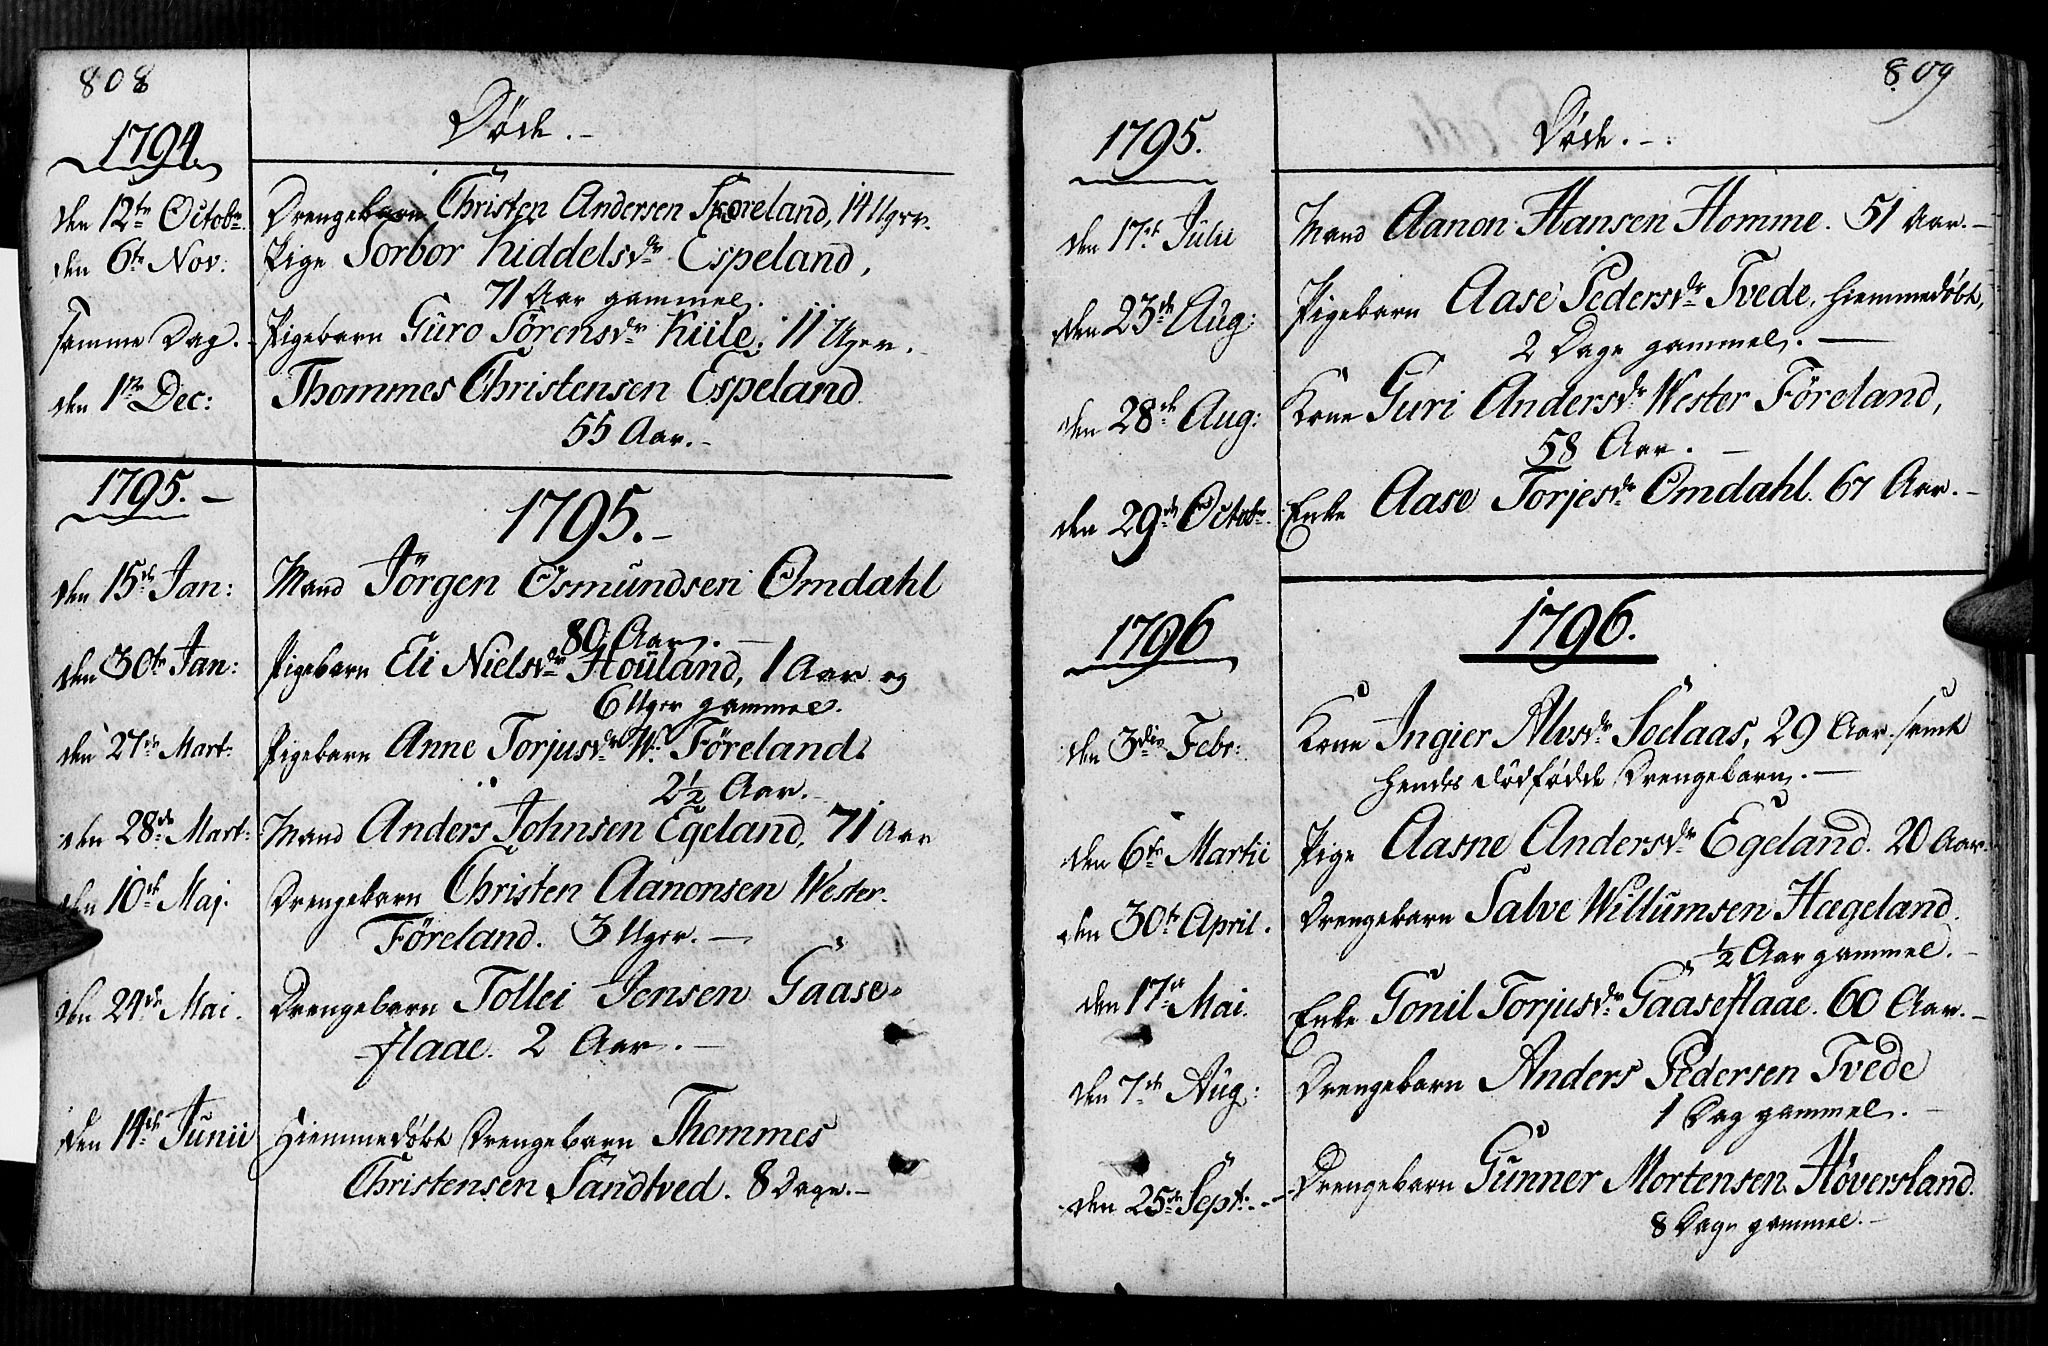 808
Døde.-
1794.
den 12te Octobr. Drengebarn Christen Andersen Føreland, 14 Uger.
den 6te Nov: Pige Torbor Kiddelsdr Espeland,
71 Aar gammel.
samme Dag. Pigebarn Guro Sørensdr Kiile. 11 Uger.
den 1ste Dec: Thommes Christensen Espeland.
55 Aar.-
1795.-
1795.-
den 15de Jan: Mand Jörgen Osmundsen Omdahl
80 Aar. -
den 30te Jan: Pigebarn Eli Nielsdr Houland, 1 Aar og
6 Uger gammel.
den 27de Mart: Pigebarn Anne Torjusdr W. Föreland.
2½ Aar.
den 28de Mart: Mand Anders Johnsen Egeland, 71 Aar
den 10de Maj. Drengebarn Christen Aanonsen Wester
Föreland. 3 Uger. -
den 24de Mai. Drengebarn Tollei Jensen Gaase-
flaae. 2 Aar. -
den 14de Junii Hiemmedøbt Drengebarn Thommes
Christensen Sandtved. 8 Dage.-
809
Døde.-:
1795.
den 17de Julii Mand Aanon Hansen Homme. 51 Aar.-
den 23de Aug: Pigebarn Aase Pedersdr Tvede, hiemmedøbt,
2 Dage gammel. -
den 28de Aug: Kone Guri Andersdr Wester Föreland,
58 Aar. -
den 29de Octobr. Enke Aase Torjesdr Omdahl. 67 Aar.-
1796
1796.
den 3die Febr: Kone Ingier Alvsdr Solaas, 29 Aar samt
hendes dødfødde Drengebarn. -
den 6te Martii Pige Aasne Andersdr Egeland. 20 Aar.
den 30te April. Drengebarn Salve Willumsen Hægeland.
½ Aar gammel. -
den 17de Mai. Enke Gonil Torjusdr Gaaseflaae. 60 Aar.-
den 7de Aug: Drengebarn Anders Pedersen Tvede
1 Dag gammel. -
den 25de Sept:-- Drengebarn Gunner Mortensen Høversland.
8 Dage gammel.-